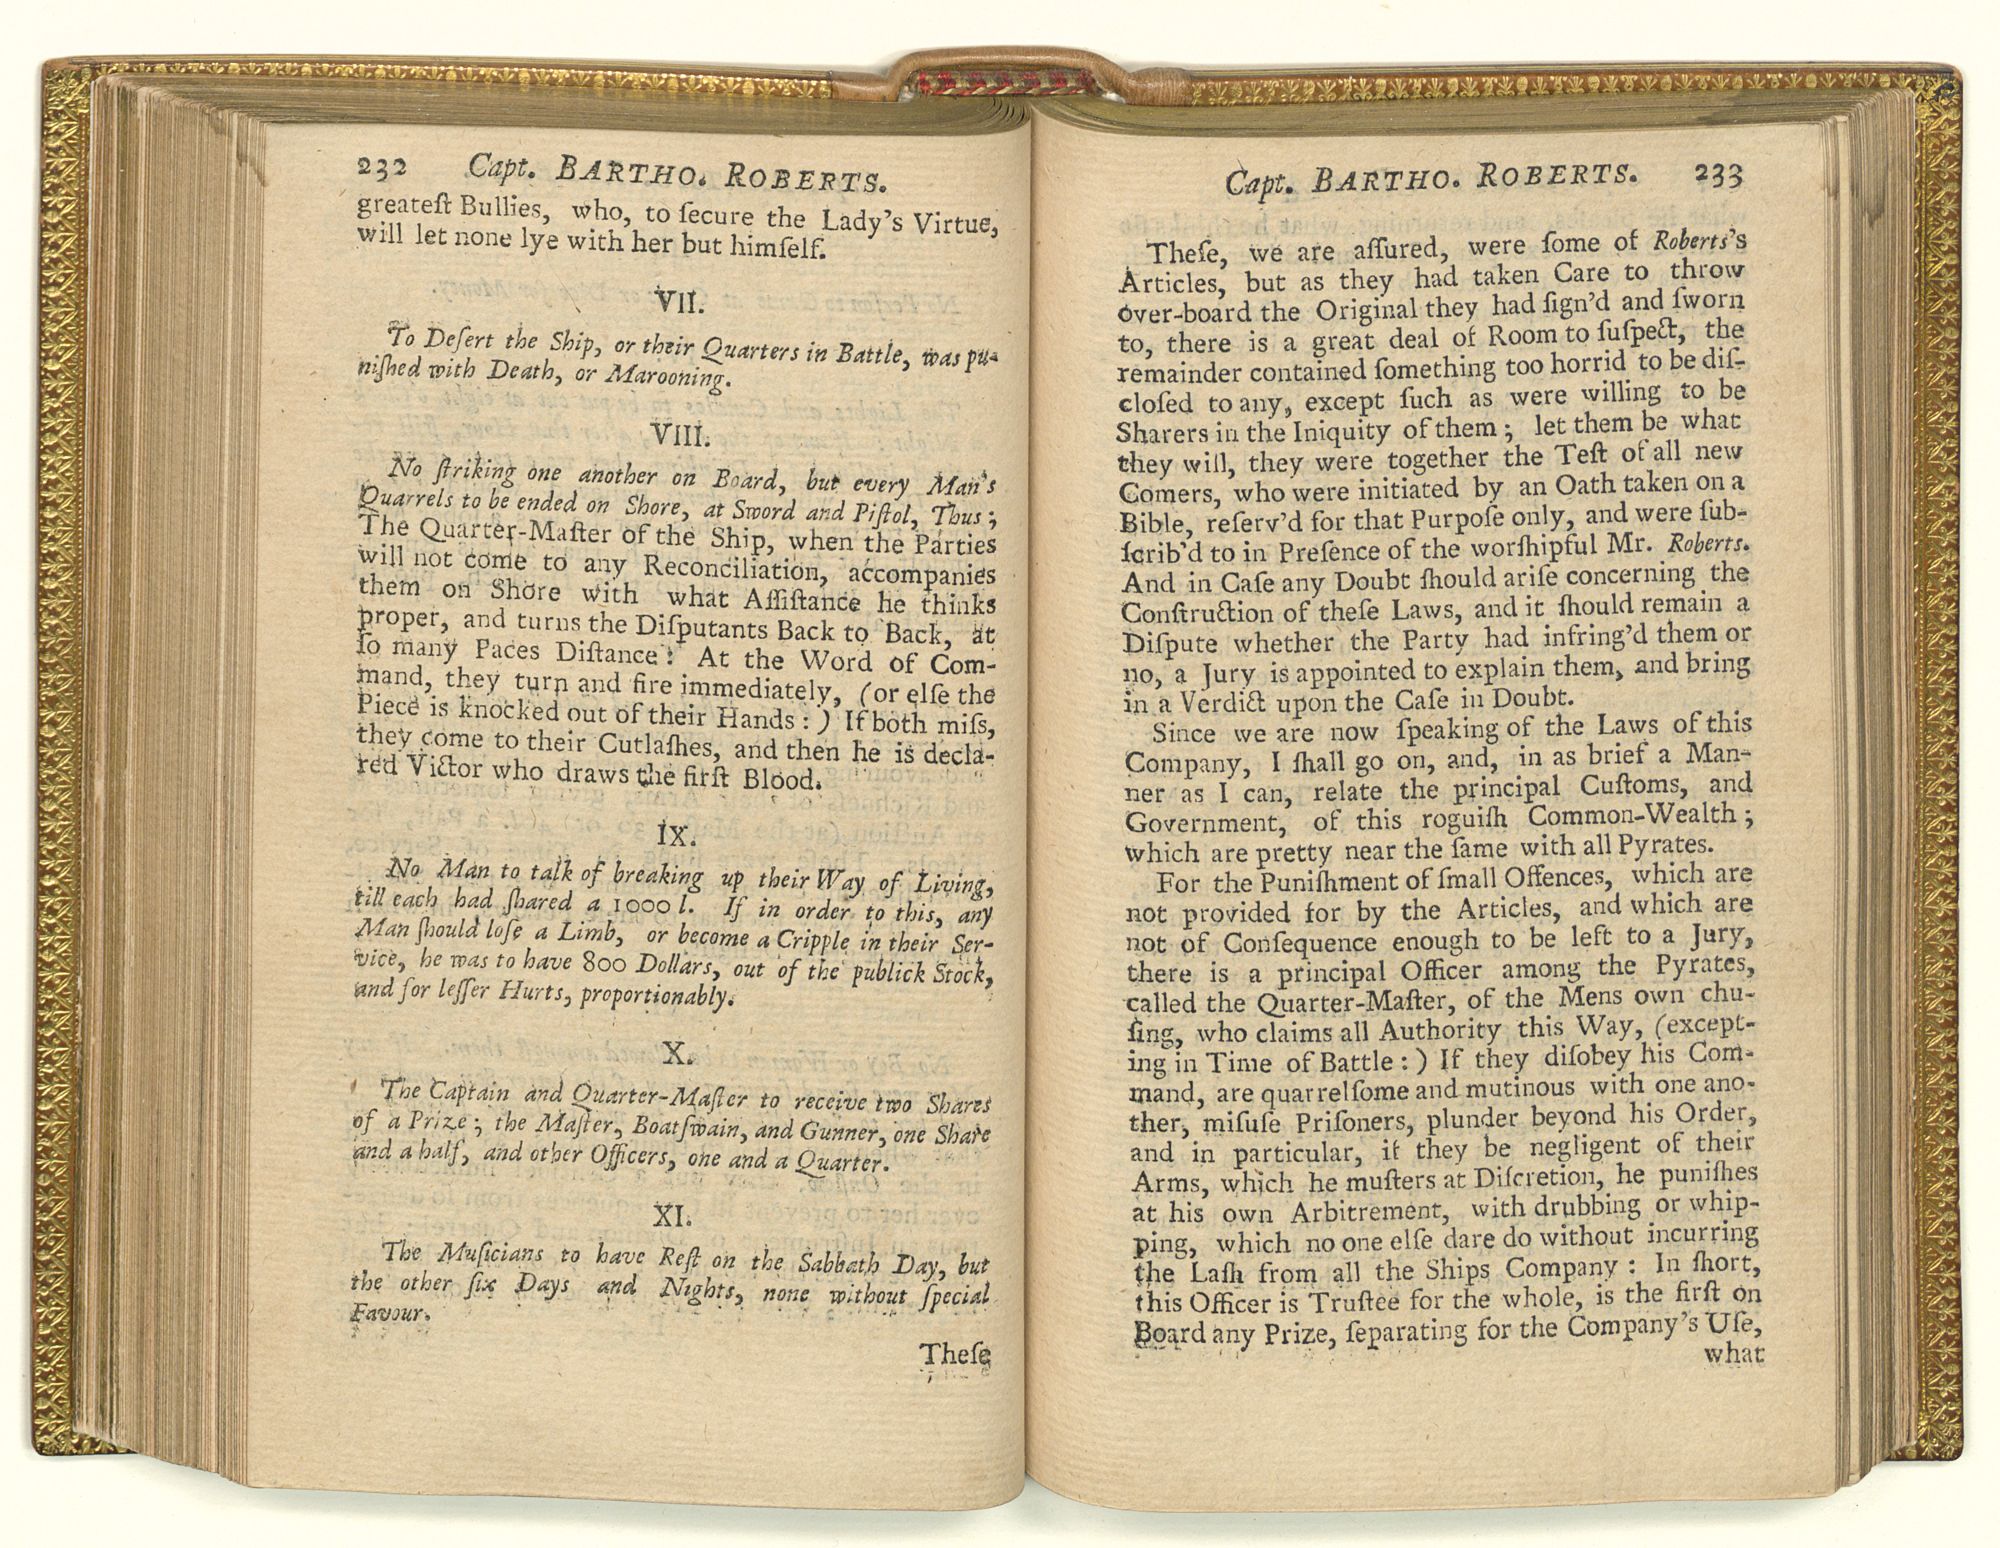 232 Capt. BARTHO. ROBERTS.
greateſt Bullies, who, to ſecure the Lady's Virtue,
will let none lye with her but himſelf.
VII.
To Deſert the Ship, or their Quarters in Battle, was pu-
niſhed with Death, or Marooning.
VIII.
No ſtriking one another on Board, but every Man's
Quarrels to be ended on Shore, at Sword and Piſtol, Thus;
The Quarter-Maſter of the Ship, when the Parties
will not come to any Reconciliation, accompanies
them on Shore with what Aſſiſtance he thinks
proper, and turns the Diſputants Back to Back, at
ſo many Paces Diſtance: At the Word of Com-
mand, they turn and fire immediately, (or elſe the
Piece is knocked out of their Hands:) If both miſs,
they come to their Cutlaſhes, and then he is decla-
red Victor who draws the firſt Blood.
IX.
No Man to talk of breaking up their Way of Living,
till each had ſhared a 1000 l. If in order to this, any
Man ſhould loſe a Limb, or become a Cripple in their Ser-
vice, he was to have 800 Dollars, out of the publick Stock,
and for leſſer Hurts, proportionably.
X.
The Captain and Quarter-Maſter to receive two Shares
of a Prize; the Maſter, Boatſwain, and Gunner, one Share
and a half, and other Officers, one and a Quarter.
XI.
The Muſicians to have Reſt on the Sabbath Day, but
the other ſix Days and Nights, none without ſpecial
Favour.
Theſe
Capt. BARTHO. ROBERTS. 233
Theſe, we are aſſured, were ſome of Roberts's
Articles, but as they had taken Care to throw
over-board the Original they had ſign'd and ſworn
to, there is a great deal of Room to ſuſpect, the
remainder contained ſomething too horrid to be diſ-
cloſed to any, except ſuch as were willing to be
Sharers in the Iniquity of them; let them be what
they will, they were together the Teſt of all new
Comers, who were initiated by an Oath taken on a
Bible, reſerv'd for that Purpoſe only, and were ſub-
ſcrib'd to in Preſence of the worſhipful Mr. Roberts.
And in Caſe any Doubt ſhould ariſe concerning the
Conſtruction of theſe Laws, and it ſhould remain a
Diſpute whether the Party had infring'd them or
no, a Jury is appointed to explain them, and bring
in a Verdict upon the Caſe in Doubt.
Since we are now ſpeaking of the Laws of this
Company, I ſhall go on, and, in as brief a Man-
ner as I can, relate the principal Cuſtoms, and
Government, of this roguiſh Common-Wealth;
which are pretty near the ſame with all Pyrates.
For the Puniſhment of ſmall Offences, which are
not provided for by the Articles, and which are
not of Conſequence enough to be left to a Jury,
there is a principal Officer among the Pyrates,
called the Quarter-Maſter, of the Mens own chu-
ſing, who claims all Authority this Way, (except-
ing in Time of Battle:) If they diſobey his Com-
mand, are quarrelſome and mutinous with one ano-
ther, miſuſe Priſoners, plunder beyond his Order,
and in particular, if they be negligent of their
Arms, which he muſters at Diſcretion, he puniſhes
at his own Arbitrement, with drubbing or whip-
ping, which no one elſe dare do without incurring
the Laſh from all the Ships Company: In ſhort,
this Officer is Truſtee for the whole, is the firſt on
Board any Prize, ſeparating for the Company's Uſe,
what